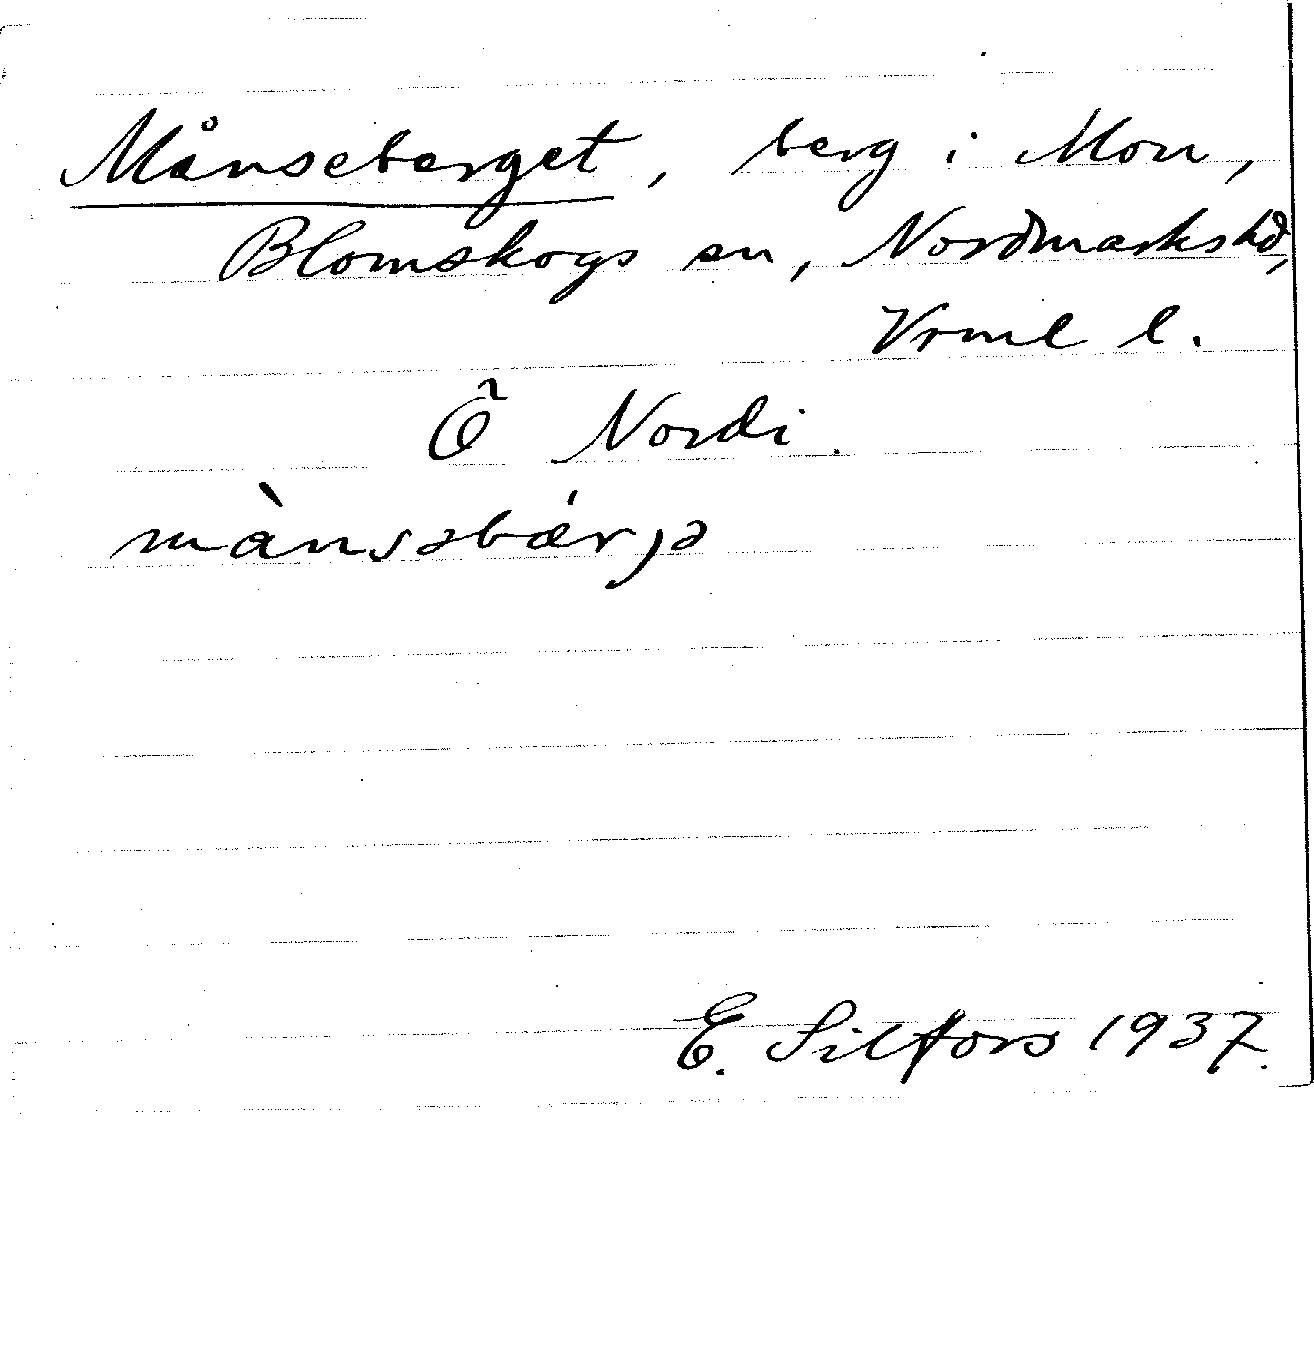 Månseberget, berg i Mon,
Blomskogs sn, Nordmarks hd,
Vrml l.
Õ Nordi.
mànsəbǽrjə
E. Silfors 1937.